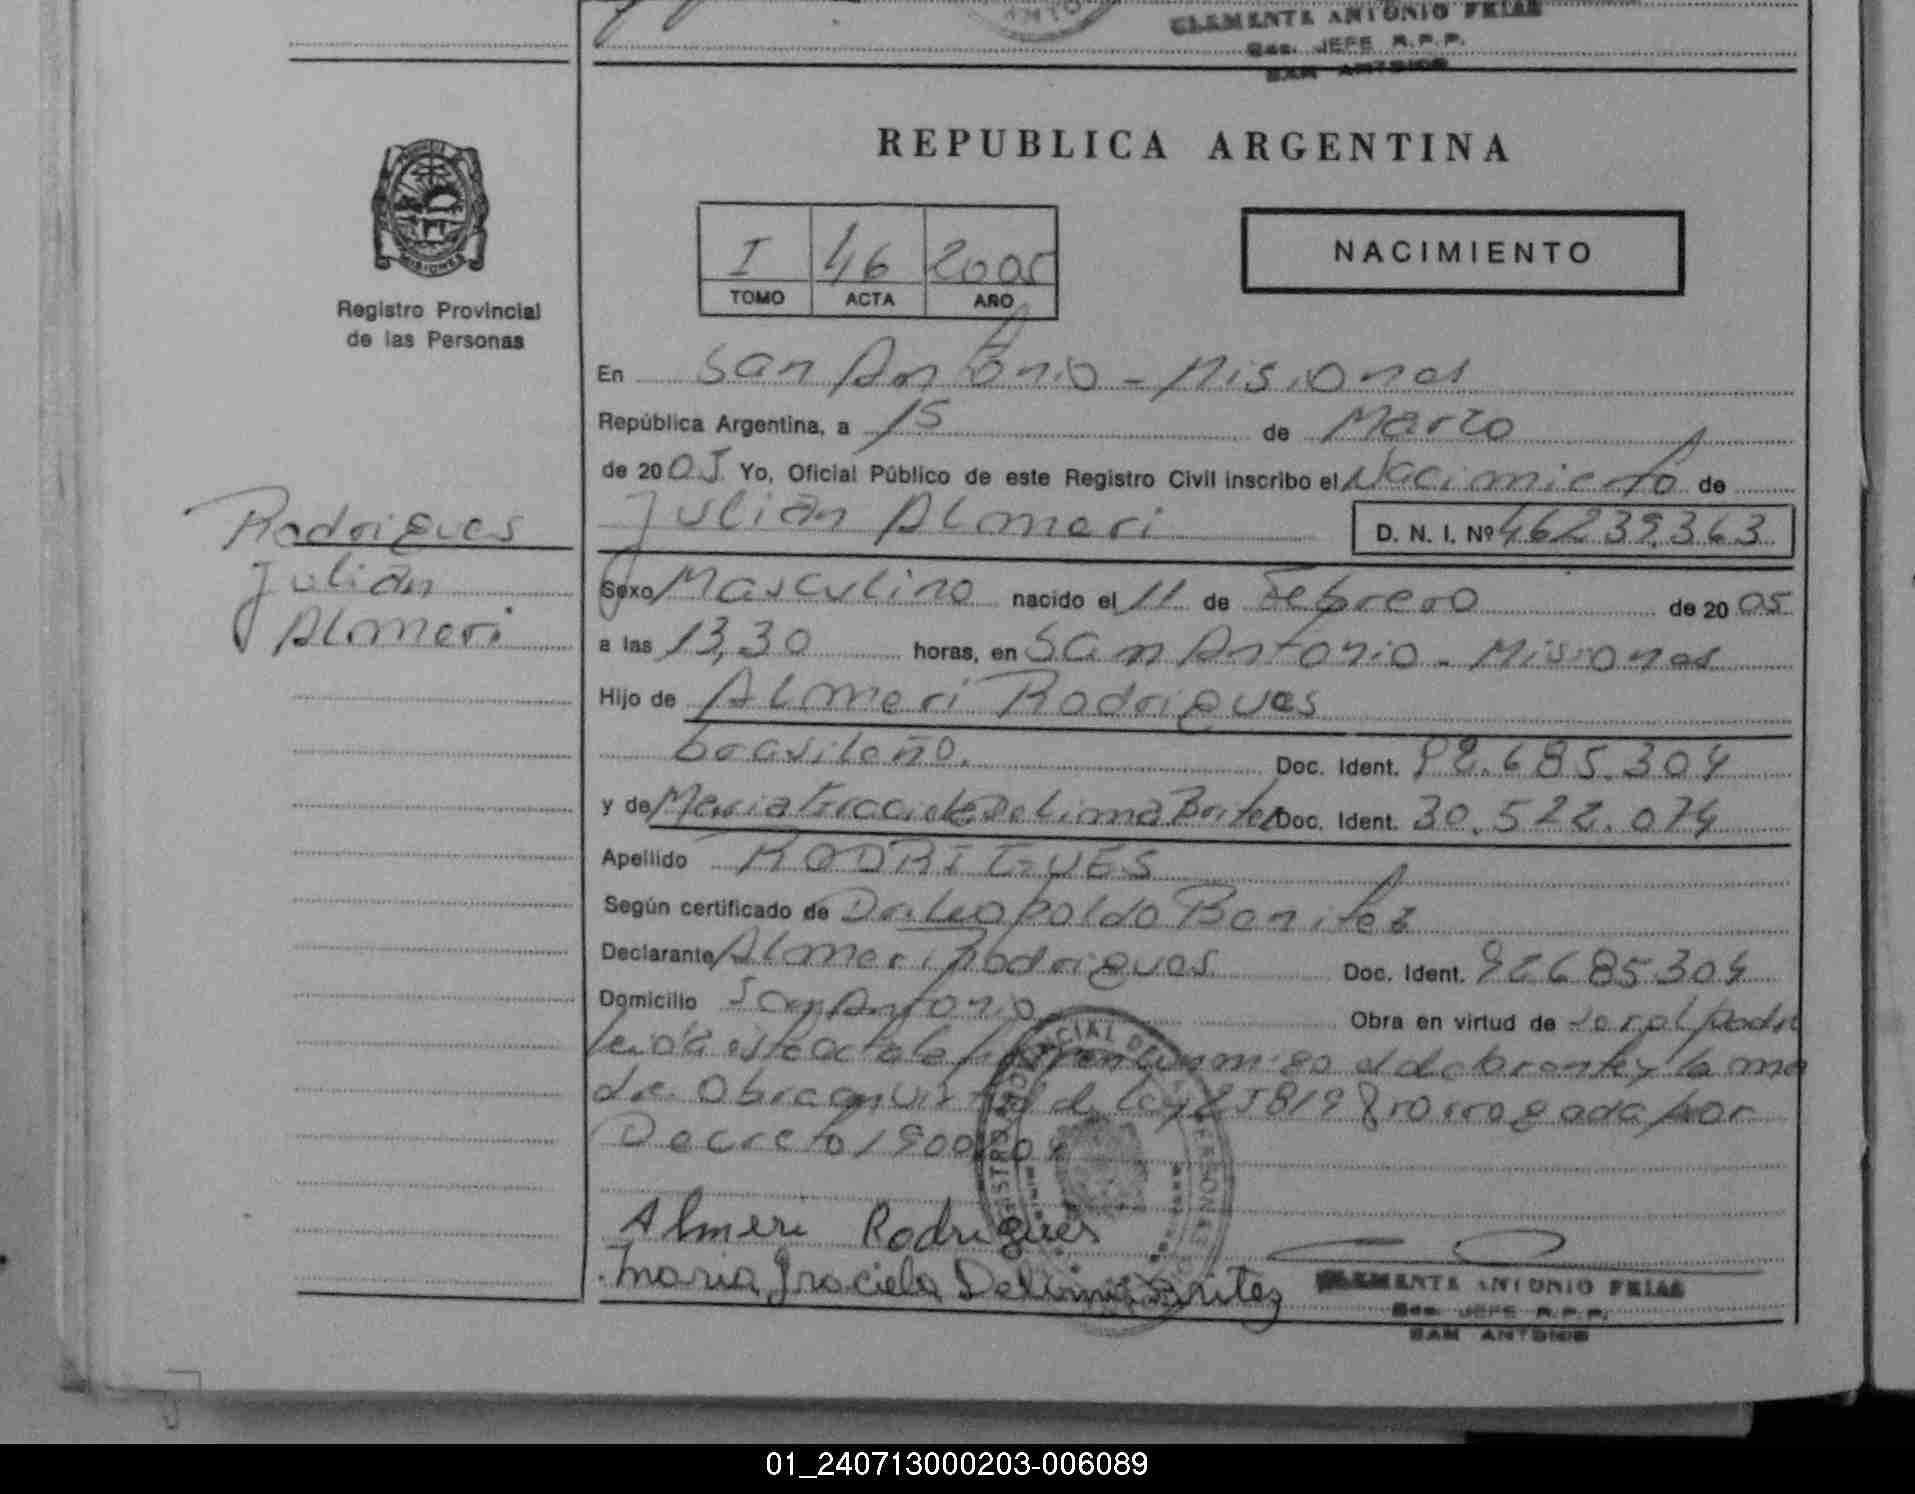 CLEMENTE ANTONIO FRIAS
JEFE R.P.P.
SAN ANTONIO
REPUBLICA ARGENTINA
MISIONES
Registro Provincial
de las Personas
I 46 2005
TOMO ACTA AÑO
NACIMIENTO
En San Antonio - Misiones
República Argentina, a 15 de Marzo
de 2005 Yo, Oficial Público de este Registro Civil inscribo el Nacimiento de
Julián Almeri D. N. I. Nº 46.239.363
Rodrigues
Julián
Almeri
Sexo Masculino nacido el 11 de Febrero de 2005
a las 13,30 horas, en San Antonio - Misiones
Hijo de Almeri Rodrigues
brasileño. Doc. Ident. 92.685.304
y de Maria Graciela De Lima Britez Doc. Ident. 30.522.074
Apellido RODRIGUES
Según certificado de Dr. Leopoldo Benitez
Declarante Almeri Rodrigues Doc. Ident. 92685304
Domicilio San Antonio Obra en virtud de ser el padre
leida este acta la firman conmigo el declarante y la ma
dre. Obra en virtud de Ley 25819 Prorrogada por
Decreto 1900/04
Almeri Rodrigues
Maria Graciela De Lima Britez
CLEMENTE ANTONIO FRIAS
JEFE R.P.P.
SAN ANTONIO
01_240713000203-006089